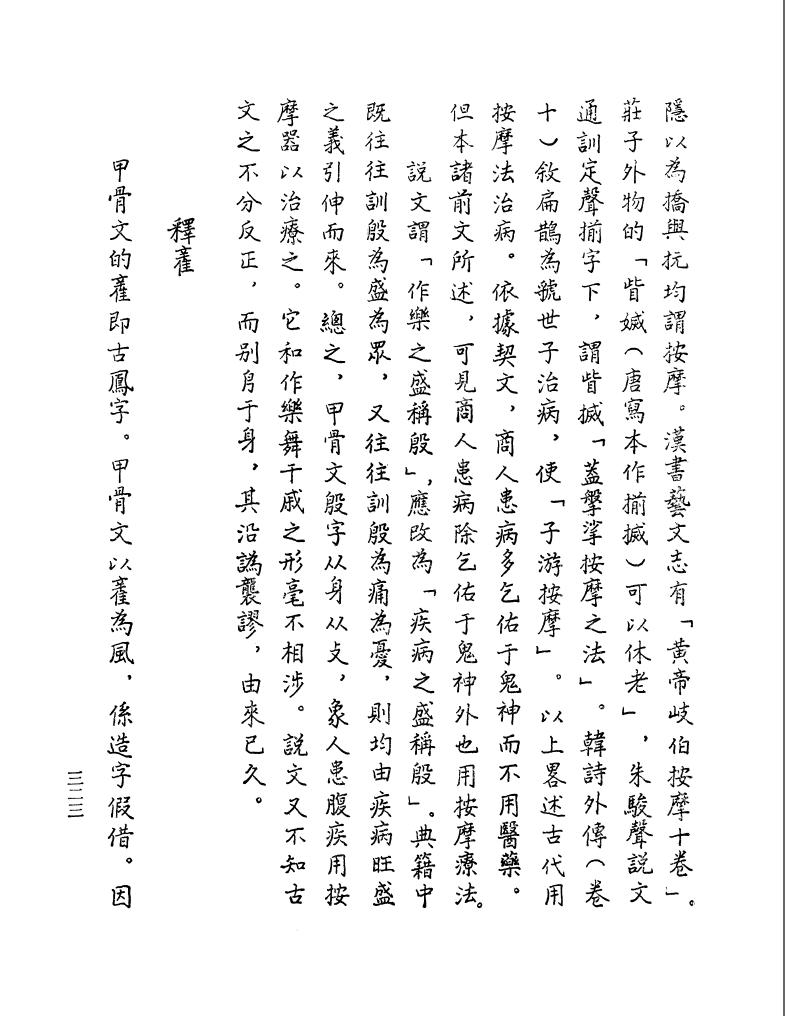 隱以為撟與抏均謂按摩。漢書藝文志有「黃帝岐伯按摩十卷」。
莊子外物的「眥媙（唐寫本作揃搣）可以休老」，朱駿聲說文
通訓定聲揃字下，謂眥搣「蓋擊挲按摩之法」。韓詩外傳（卷
十）敘扁鵲為虢世子治病，使「子游按摩」。以上畧述古代用
按摩法治病。依據契文，商人患病多乞佑于鬼神而不用醫藥。
但本諸前文所述，可見商人患病除乞佑于鬼神外也用按摩療法。
說文謂「作樂之盛稱殷」，應改為「疾病之盛稱殷」。典籍中
既往往訓殷為盛為眾，又往往訓殷為痛為憂，則均由疾病旺盛
之義引伸而來。總之，甲骨文殷字从身从攴，象人患腹疾用按
摩器以治療之。它和作樂舞干戚之形毫不相涉。說文又不知古
文之不分反正，而別㐆于身，其沿譌襲謬，由來已久。
釋雚
甲骨文的雚即古鳳字。甲骨文以雚為風，係造字假借。因
三二三